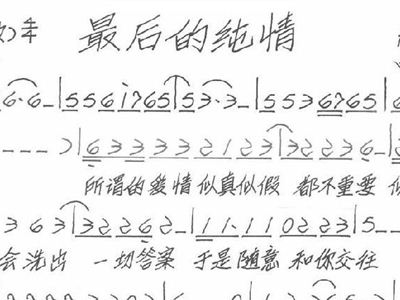 最后的纯情
6·6-|5561765|53·3-|5536765|6
---)|633332123|32236-|2
所谓的爱情似真似假 都不重要
363|32262-|11·110223|5--
会浇出 一切答案 于是随意 和你交往